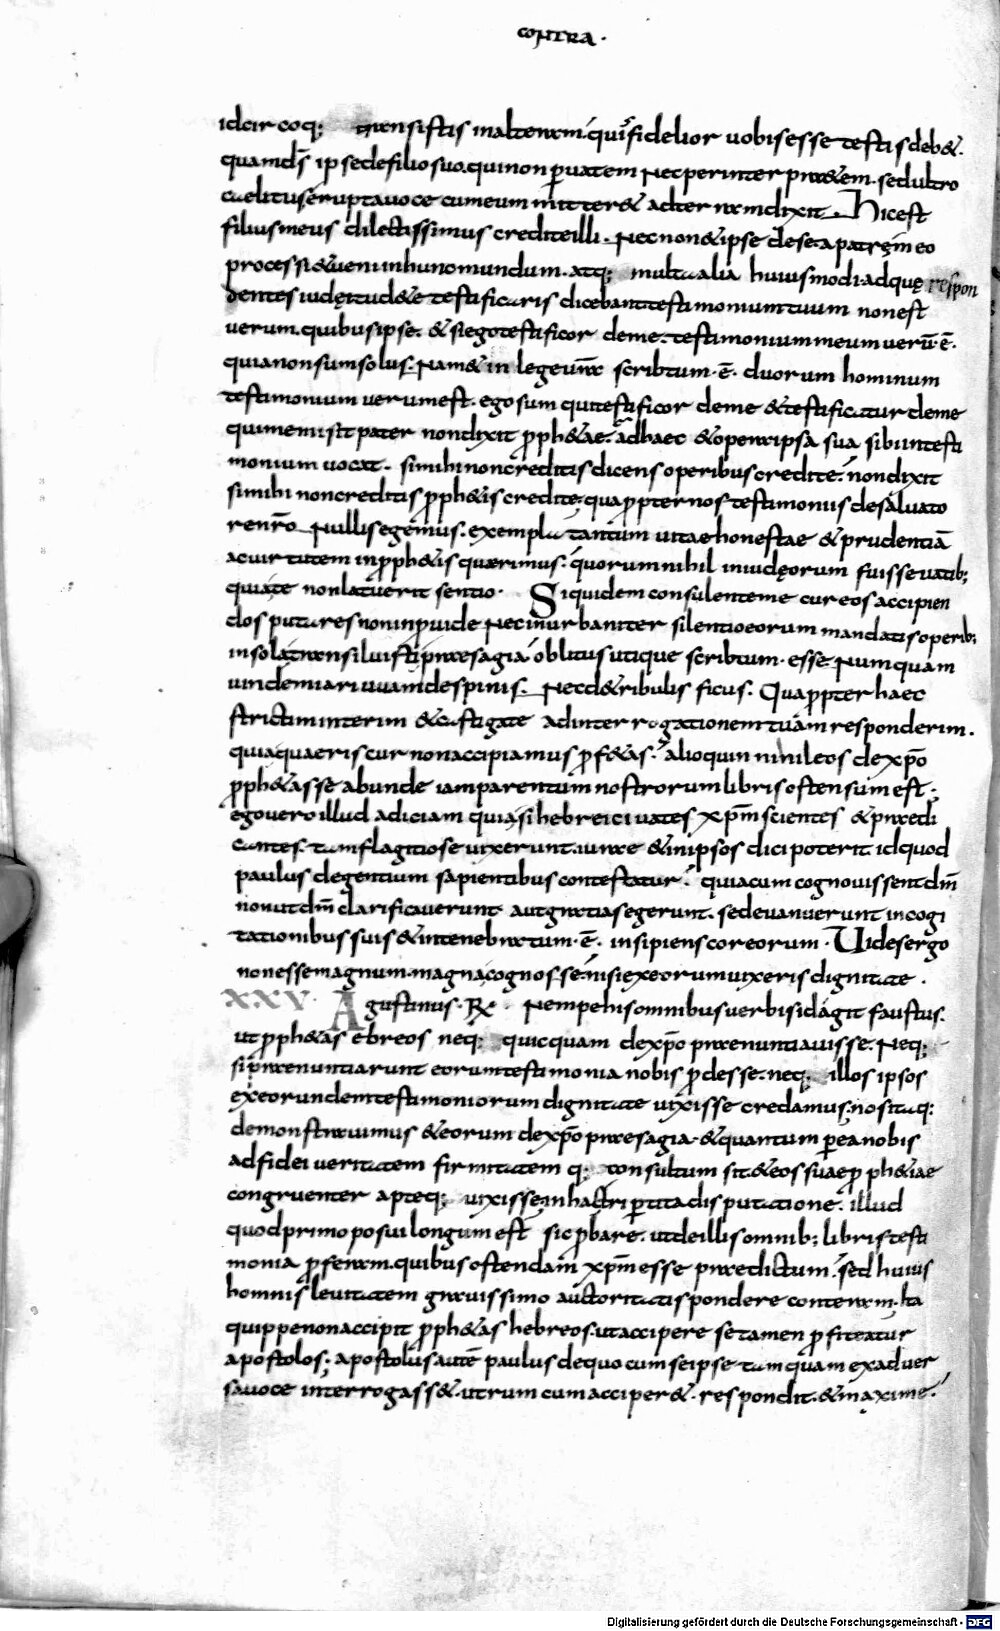 CONTRA·
idcircoq; transistis inalteram. qui fidelior uobis esse testis deb&.
quam ds ipse de filio suo. qui non p uatem nec per interpr&em. sed ultro
caelitus erupta uoce cum eum mitter& ad terram dixit. Hic est
filius meus dilectissimus credite illi. Nec non & ipse de se. a patre meo
processi & ueni in hunc mundum. atq; multa alia huiusmodi. ad quę respon
dentes iudęi tu de te testificaris dicebant testimonium tuum non est
uerum. quibus ipse. & si ego testificor de me. testimonium meum ueru ē.
quia non sum solus. Nam & in lege ura scribtum. ē. duorum hominum
testimonium uerum est. ego sum qui testificor de me & testificatur de me
qui me misit pater non dixit p ph&ae. ad haec & opera ipsa sua sibi in testi
monium uocat. si mihi non creditis dicens operibus credite. non dixit
si mihi non creditis p ph&is credite. qua p pter nos testimoniis de saluato
re nro nullis egemus. exempla tantum uitae honestae & prudentiā
ac uirtutem in p ph&is quaerimus. quorum nihil in iudęorum fuisse uatib;
quia te non latuerit sentio. Siquidem consulente me cur eos accipien
dos putares non inprouide nec inurbaniter silentio eorum mandatis operib;
in sola transiluisti praesagia oblitus utique scribtum. esse. Numquam
uindemiari uuam de spinis. Nec de tribulis ficus. Qua p pter haec
strictim interim & castigate ad interrogationem tuam responderim.
quia quaeris cur non accipiamus p f&as. alioquin nihil eos de xpo
p ph&asse abunde iam parentum nostrorum libris ostensum est.
ego uero illud adiciam quia si hebreici uates xpm scientes & praedi
cantes. tam flagitiose uixerunt. iure & in ipsos dici poterit id quod
paulus de gentium sapientibus contestatur. quia cum cognouissent dm
non ut dm clarificauerunt aut gratias egerunt. sed euanuerunt in cogi
tationibus suis & intenebratum. ē. insipiens cor eorum. Uides ergo
non esse magnum. magna cognosse. nisi ex eorum uixeris dignitate.
XXV. Agustinus. R. Nempe his omnibus uerbis id agit faustus.
ut p ph&as ebreos neq; quicquam de xpo praenuntiauisse. Neq;
si praenuntiarunt eorum testimonia nobis p desse. neq; illos ipsos
ex eorundem testimoniorum dignitate uixisse credamus. nos itaq:
demonstrauimus & eorum de xpo praesagia. & quantum p ea nobis
ad fidei ueritatem firmitatemq; consultum sit. & eos suae p ph&iae
congruenter apteq; uixisse. in hac tripertita disputatione. illud
quod primo posui longum est sic p bare. ut de illis omnib; libris testi
monia p feram. quibus ostendam xpm esse praedictum. sed huius
hominis leuitatem grauissimo auctoritatis pondere conteram. Ita
quippe non accipit p ph&as hebreos. ut accipere se tamen p fiteatur
apostolos; apostolus autē paulus de quo cum se ipse tamquam ex aduer
sa uoce interrogass&. utrum cum acciper&. respondit. & maxime.
Digitalisierung gefördert durch die Deutsche Forschungsgemeinschaft - DFG